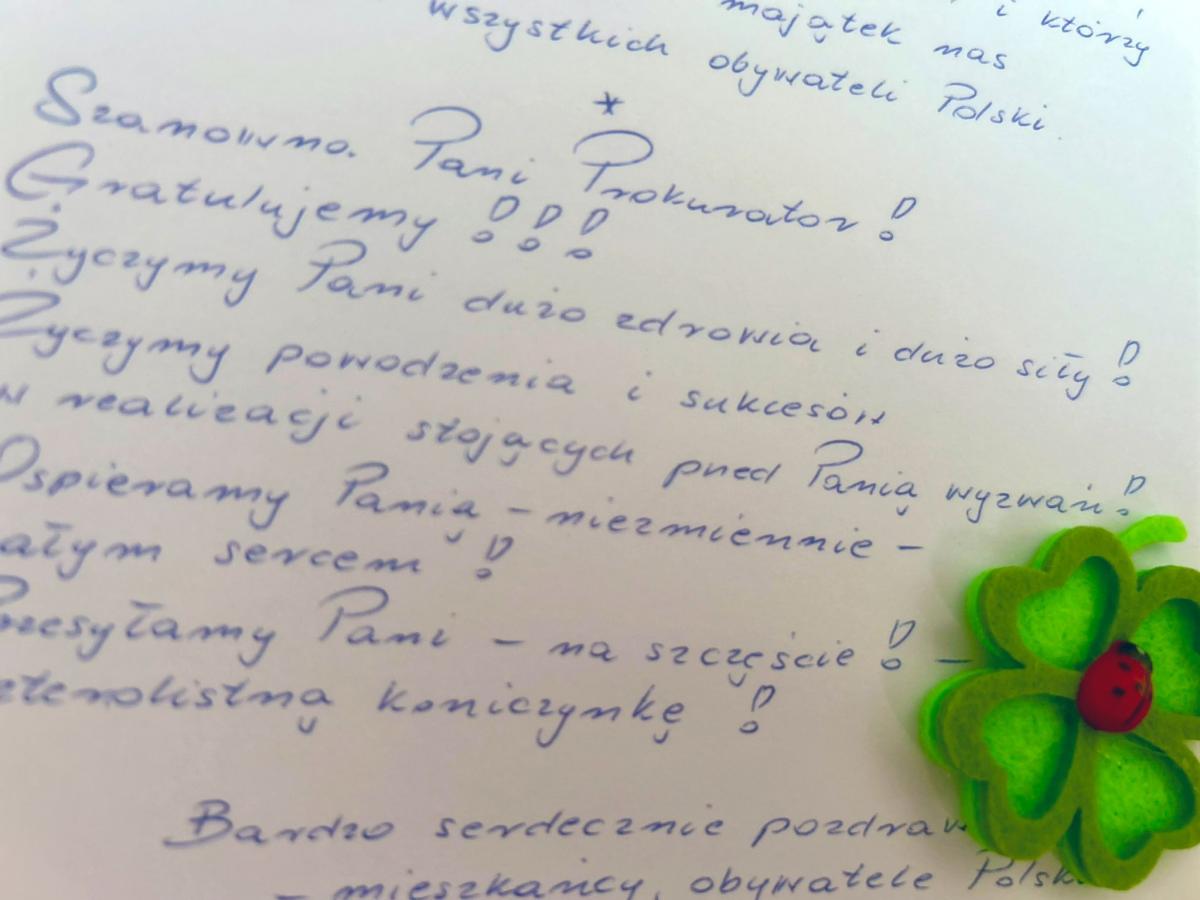 i którzy
majątek nas
wszystkich obywateli Polski.
*
Szanowna Pani Prokurator!
Gratulujemy!!!
Życzymy Pani dużo zdrowia i dużo siły!
Życzymy powodzenia i sukcesów
w realizacji stojących przed Panią wyzwań!
Wspieramy Panią – niezmiennie –
ałym sercem!
Przesyłamy Pani – na szczęście! –
zterolistną koniczynkę!
Bardzo serdecznie pozdraw
– mieszkańcy, obywatele Polsk